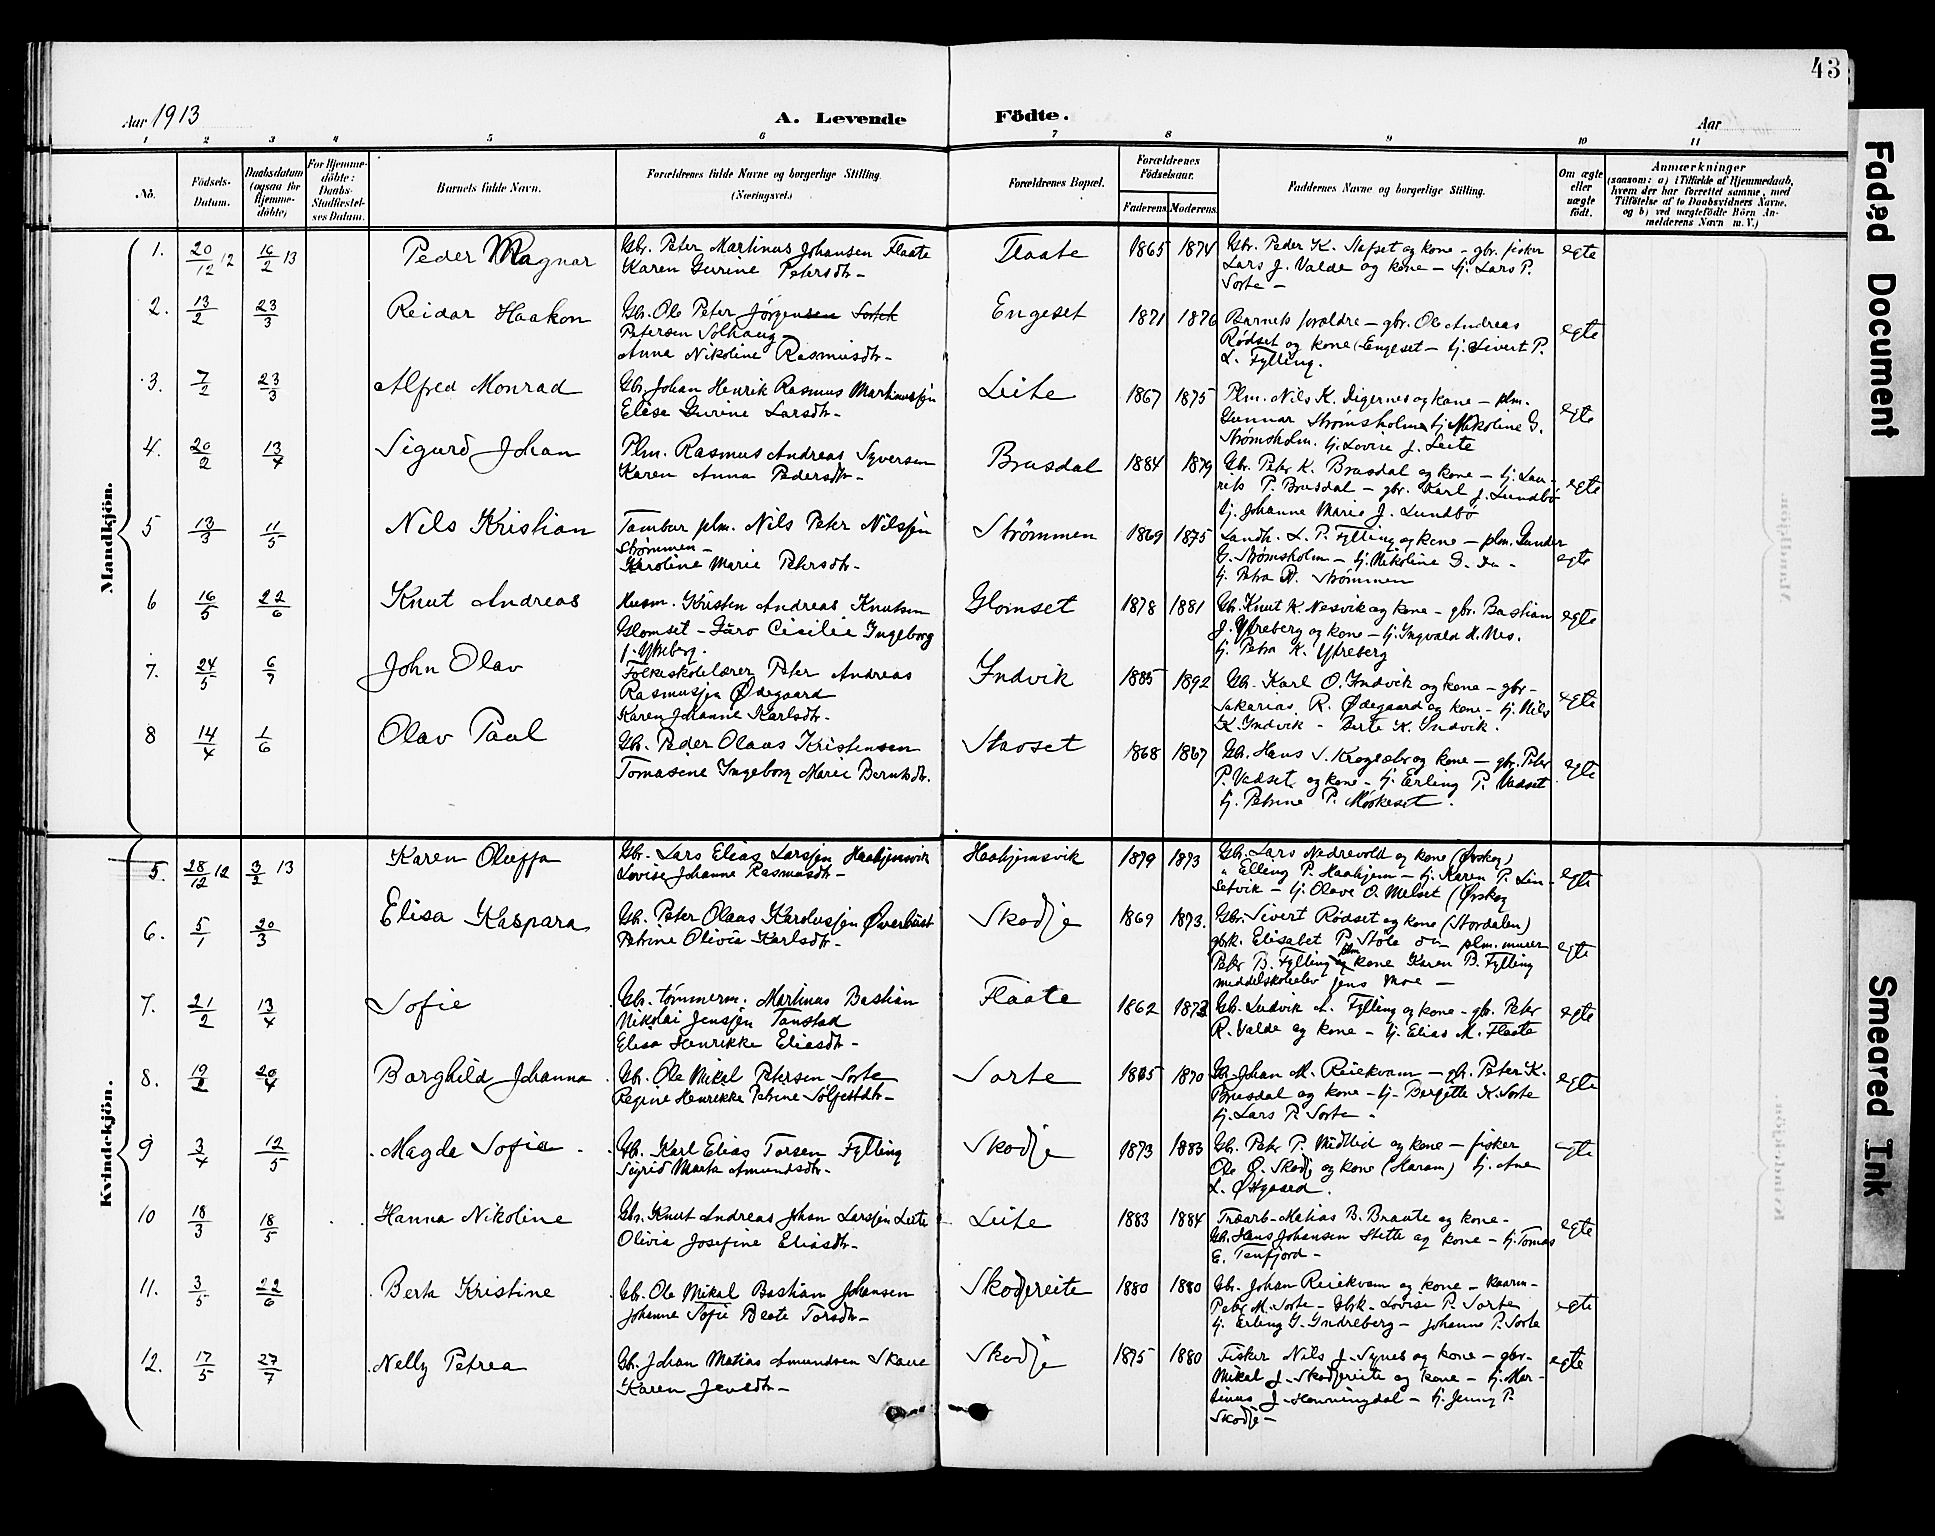 43
Aar 1913
A. Levende
Födte.
Aar
1 2 3 4 5 6 7 8 9 10 11
No.
Födsels-Datum.
Daabsdatum (ogsaa for Hjemme-döbte)
For Hjemme-döbte: Daabs-Stadfæstel-ses Datum.
Barnets fulde Navn.
Forældrenes fulde Navne og borgerlige Stilling. (Næringsvei.)
Forældrenes Bopæl.
Forældrenes Födselsaar.
Faderens Moderens
Faddernes Navne og borgerlige Stilling.
Om ægte eller uægte födt.
Anmærkninger
(saasom: a) i Tilfælde af Hjemmedaab, hvem der har forrettet samme, med Tilföielse af to Daabsvidners Navne, og b) ved uægtefödte Börn An-melderens Navn m.V.)
Mandkjön.
1. 20/12 12 16/2 13 Peder Magnar
Gbr. Peter Martinus Johansen Flaate
Karen Gurine Petersdtr-
Flaate 1865 1874
Gbr. Peder K. Slafset og kone - gbr. fisker
Lars J. Valde og kone - tj. Lars P.
Sorte -
egte
2. 13/2 23/3 Reidar Haakon
Gbr. Ole Peter Jörgensen
Petersen Solhaug
Anna Nikoline Rasmusdtr-
Engeset 1871 1876
Barnets foraldre - gbr. Ole Andreas
Rödset og kone, Engeset - tj. Sivert P.
L. Fylling.
egte
3. 7/2 23/3 Alfred Monrad
Gbr. Johan Henrik Rasmus Martinussjen
Elise Gurine Larsdtr-
Leite 1867 1875
Plm. Nils K. Digernes og kone - plm.
Gunnar Strømsholm tj. Nikoline G.
Strømsholm. tj. Lovise J. Leite
egte
4. 20/2 13/4 Sigurd Johan
Plm. Rasmus Andreas Syversen
Karen Anna Pedersdtr-
Brusdal 1884 1879
Gbr. Peter K. Brusdal og kone - tj. Lau-
rits P. Brusdal - gbr. Karl J. Lundbö
tj. Johanne Marie J. Lundbö
egte
5 13/3 11/5 Nils Kristian
Tambur plm. Nils Peter Nilssjen
Strømmen -
Karoline Marie Petersdtr-
Strömmen 1869 1875
Landh. L. P. Fylling og kone - plm. Gunder
G. Strømsholm - tj. Nikoline G. Do -
tj. Petra P. Strømmen
egte
6 16/5 22/6 Knut Andreas
Husm. Kristen Andreas Knutsen
Glomset - Guro Cisilie Ingeborg
J. Ytreberg.
Glomset 1878 1881
Gbr. Knut K. Nesvik og kone - gbr. Bastian
J. Ytreberg og kone - tj. Ingvald K. Nes.
tj. Petra K. Ytreberg
egte
7. 24/5 6/7 John Olav
Folkeskolelærer Peter Andreas
Rasmusjen Ødegaard
Karen Johanne Karlsdtr-
Indvik 1885 1892
Gbr. Karl O. Indvik og kone - gbr-
Sakarias R. Ødegaard og kone - tj. Nils
K. Indvik - Berte K. Indvik.
egte
8 14/4 1/6 Olav Paul
Gbr. Peder Olaus Kristensen
Tomasine Ingeborg Marie Berntsdtr.
Stavset 1868 1867
Gbr. Hans S. og kone - gbr. Peter
P. Vadset og kone - tj. Erling P. Vadset
tj. Petrine P.
egte
Kvindekjön.
5. 28/12 12 3/2 13 Karen Oluffa
Gbr. Lars Elias Larsjen Haahjemsvik
Lovise Johanne Rasmusdtr-
Haahjemsvik 1879 1873
Gbr. Lars Nedrevold og kone (Ørskog)
" Elling P. Haahjem - tj. Karen P. Lin-
setvik - tj. Olave O. Melset (Ørskog
egte
6. 5/1 20/3 Elisa Kaspara
Gbr. Peter Olaus Karolusjen Øverbust
Petrine Olivia Karlsdtr-
Skodje 1869 1873.
Gbr. Sivert Rødset og kone (Stordalen)
gbrk. Elisabet P. Stöle do - plm. murer
Peter B. Fylling og kone Karen B. Fylling
middelskoleelev Jens Moe -
egte
7. 21/2 13/4 Sofie
Gbr. tømmerm. Martinus Bastian
Nikolai Jensjen Tanstad
Elisa Henrikke Eliasdtr-
Flaate 1862 1872
Gbr. Ludvik A. Fylling og kone - gbr. Peter
R. Valde og kone - tj. Elias M. Flaate
egte
8. 19/2 20/4 Borghild Johanna
Gbr. Ole Mikal Petersen Sorte
Regine Henrikke Petrine Sölfestdtr-
Sorte 1865 1870
Gbr. Johan M. Reiekvam - gbr. Peter K.
Brusdal og kone - tj. Bergitte K. Sorte
tj. Lars P. Sorte -
egte
9 3/4 12/5 Magda Sofie
Gbr. Karl Elias Torsen Fylling
Sigrid Marta Amundsdtr-
Skodje 1873 1883
Gbr. Peter P. Midtlid og kone - fisker
Ole O. Skodje og kone (Haram) tj. Ane
L. Østgaard.
egte
10 18/3 18/5 Hanna Nikoline
Gbr. Knut Andreas Johan Larsjen Leite
Olivia Josefine Eliasdtr-
Leite 1883 1884
Matias B. Braute og kone -
Gbr. Hans Johansen Stette og kone - tj. Tomas
E. Tenfjord -
egte
11. 3/5 22/6 Berta Kristine
Gbr. Ole Mikal Bastian Johansen
Johanne Sofie Beate Torsdtr-
Skodjereite 1880 1880
Gbr. Johan Reiekvam og kone -
Peter M. Sorte - Gbrk. Lovise P. Sorte
tj. Erling G. Indreberg - Johanne P. Sorte
egte
12. 17/5 27/7 Nelly Petrea
Gbr. Johan Matias Amundsen Skaue
Karen Jensdtr-
Skodje 1875 1880
Fisker Nils J. Synes og kone - gbr-
Mikal J. Skodjereite og kone - tj. Mar-
tinus J. Hemningdal - tj. Jenny P.
Skodje -
egte
Faded Document
Smeared Ink